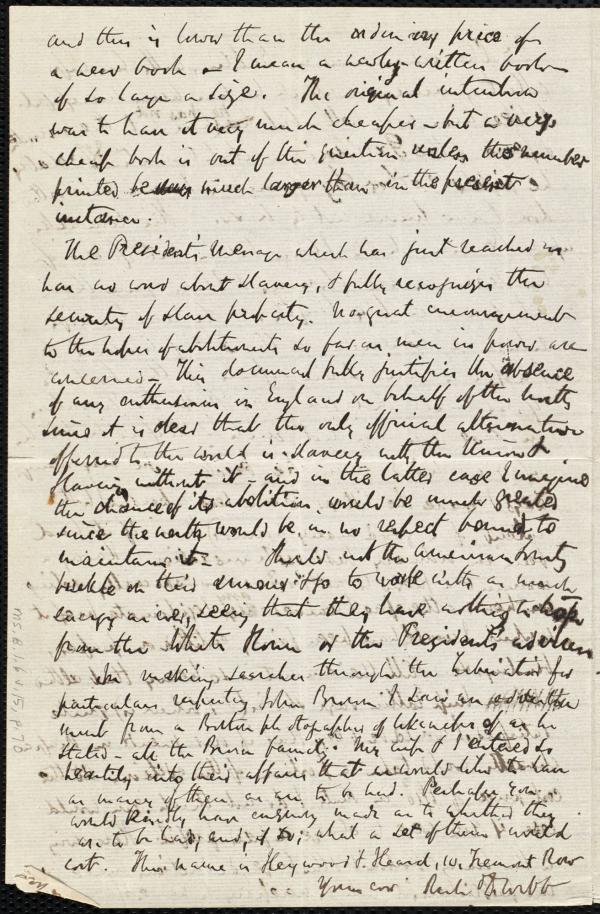 and this is lower than the ordinary price of
a new book – I mean a newly-written book
of so large a size. The original intention
was to have it very much cheaper – but a very
cheap book is out of the question unless the number
printed be much larger than in the present
instance.
The President's Message which has just reached us
has no word about slavery, & fully recognizes the
security of slave property. No great encouragement
to the hopes of abolitionists so far as men in power are
concerned – This document fully justifies the absence
of any enthusiasm in England on behalf of the North
since it is clear that the only official alternative
offered to the world is slavery with the Union &
slavery without it – and in the latter case I imagine
the chance of its abolition would be much greater
since the North would be in no respect bound to
maintain it – Should not the American Society
buckle on their armour & go to work with as much
energy as ever, seeing that they have nothing to hope
from the White House or the President's advisers
In making searches through the Liberator for
particulars respecting John Brown I saw an advertise
ment from a Boston photographer of likenesses of as he
stated – all the Brown family. My wife & I entered so
heartily into their affairs that we would like to have
as many of them as are to be had. Perhaps you
would kindly have enquiry made as to whether they
are to be had, and, if so, what a set of them would
cost. The name is Heywood & Heard, 10, Tremont Row
Yours ever Rich. D. Webb
MS.B.1.6 V.15, P.70